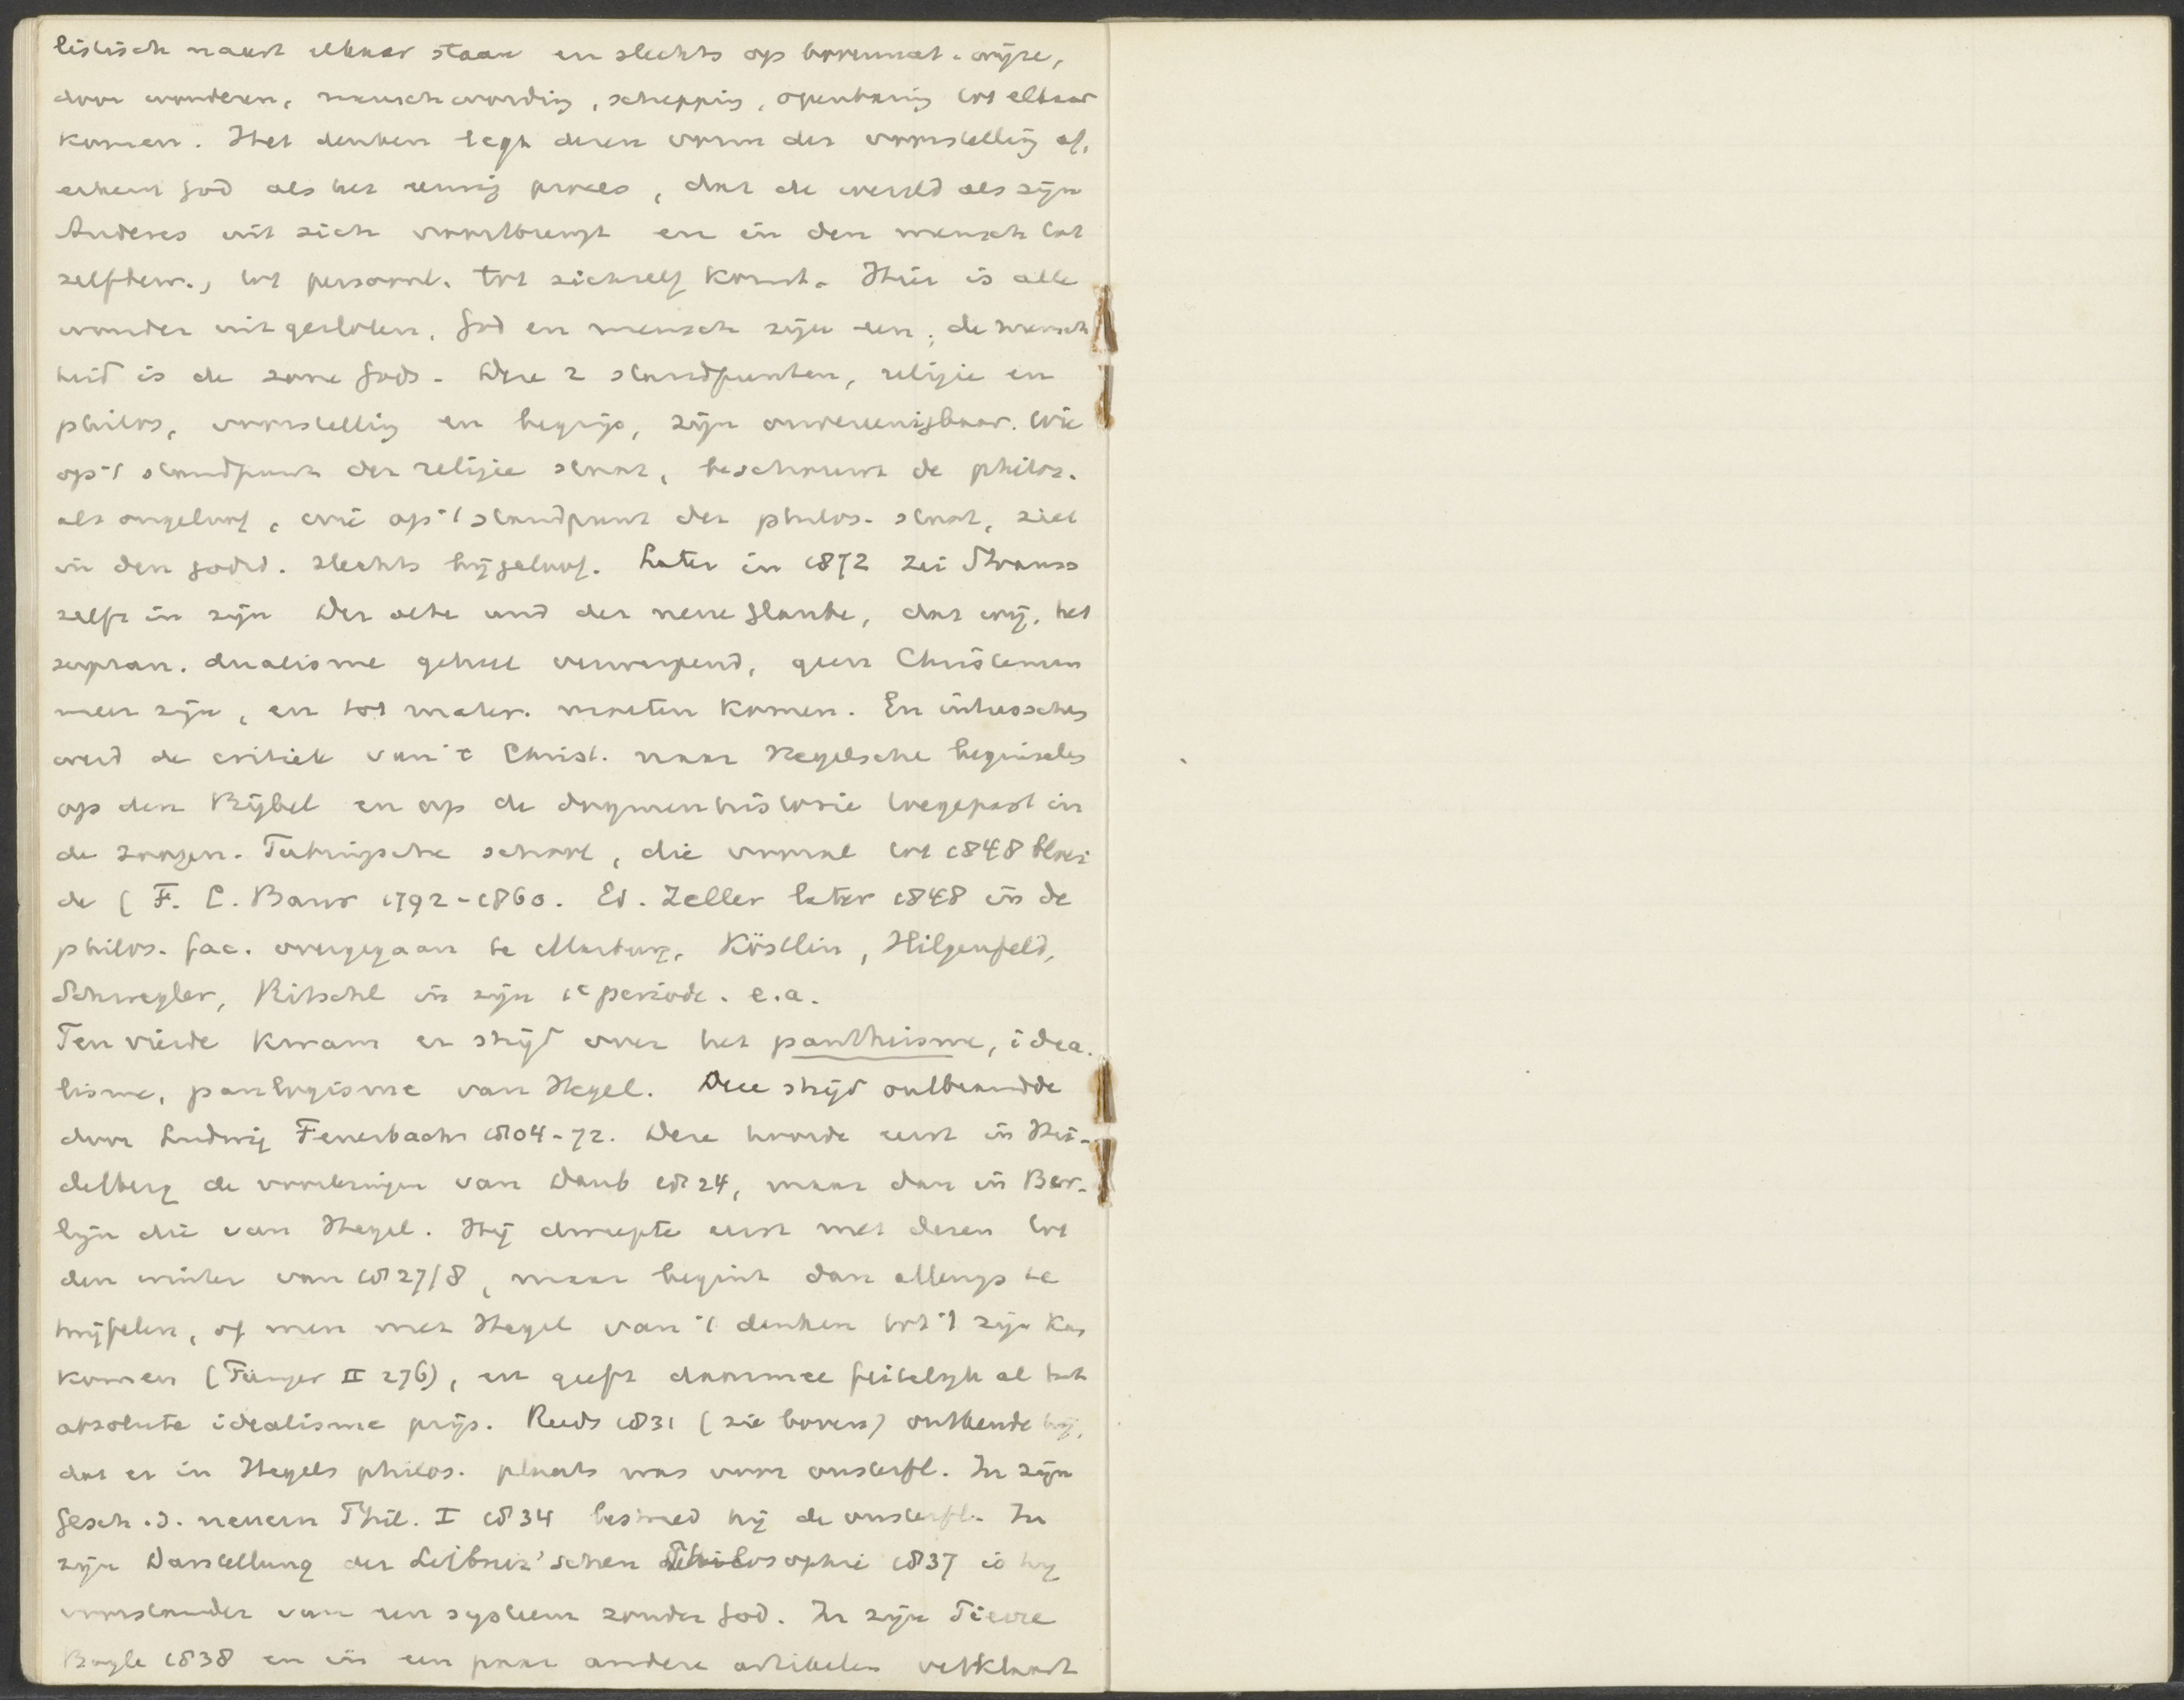 listisch naast elkaar staan en slechts op bovennat. wijze,
door wonderen, menschwording, schepping, openbaring tot elkaar
komen. Het denken legt dezen vorm der voorstelling af,
erkent God als het eeuwig proces, dat de wereld als zijn
Anderes uit zich voortbrengt en in den mensch tot
zelfbew., tot persoonl. tot zichzelf komt. Hier is alle
wonder uitgesloten. God en mensch zijn een; de mensch
heid is de zone Gods. Deze 2 standpunten, religie en
philos, voorstelling en begrip, zijn onvereenigbaar. Wie
op 't standpunt der religie staat, beschouwt de philos.
als ongeloof, wie op 't standpunt der philos. staat, ziet
in den godsd. slechts bijgeloof. Later in 1872 zei Strauss
zelfs in zijn Der alte und der neue Glaube, dat wij, het
supran. dualisme geheel verwerpend, geen Christenen
meer zijn, en tot mater. moeten komen. En intusschen
werd de critiek van 't Christ. naar Hegelsche beginselen
op den Bijbel en op de dogmenhistorie toegepast in
de zoogen. Tubingsche school, die vooral tot 1848 bloei
de (F. C. Baur 1792-1860. Ed. Zeller later 1848 in de
philos. fac. overgegaan te Marburg, Köstlin, Hilgenfeld,
Schwegler, Ritschl in zijn 1e periode. e.a.
Ten vierde kwam er strijd over het pantheisme, idea-
lisme, panlogisme van Hegel. Deze strijd ontbrandde
door Ludwig Feuerbach 1804-72. Deze hoorde eerst in Hei-
delberg de voorlezingen van Daub 1824, maar dan in Ber-
lijn die van Hegel. Hij dweepte eerst met dezen tot
den winter van 1827/8, maar begint dan allengs te
twijfelen, of men met Hegel van 't denken tot 't zijn kan
komen ( II 276), en geeft daarmee feitelijk al het
absolute idealisme prijs. Reeds 1831 (zie boven) ontkende hij,
dat er in Hegels philos. plaats was voor onsterfl. In zijn
Gesch. d. neuern Phil. I 1834 bestreed hij de onsterfl. In
zijn Darstellung der Leibniz'schen Philosophie 1837 is hij
voorstander van een systeem zonder God. In zijn Pierre
Bayle 1838 en in een paar andere artikelen verklaart